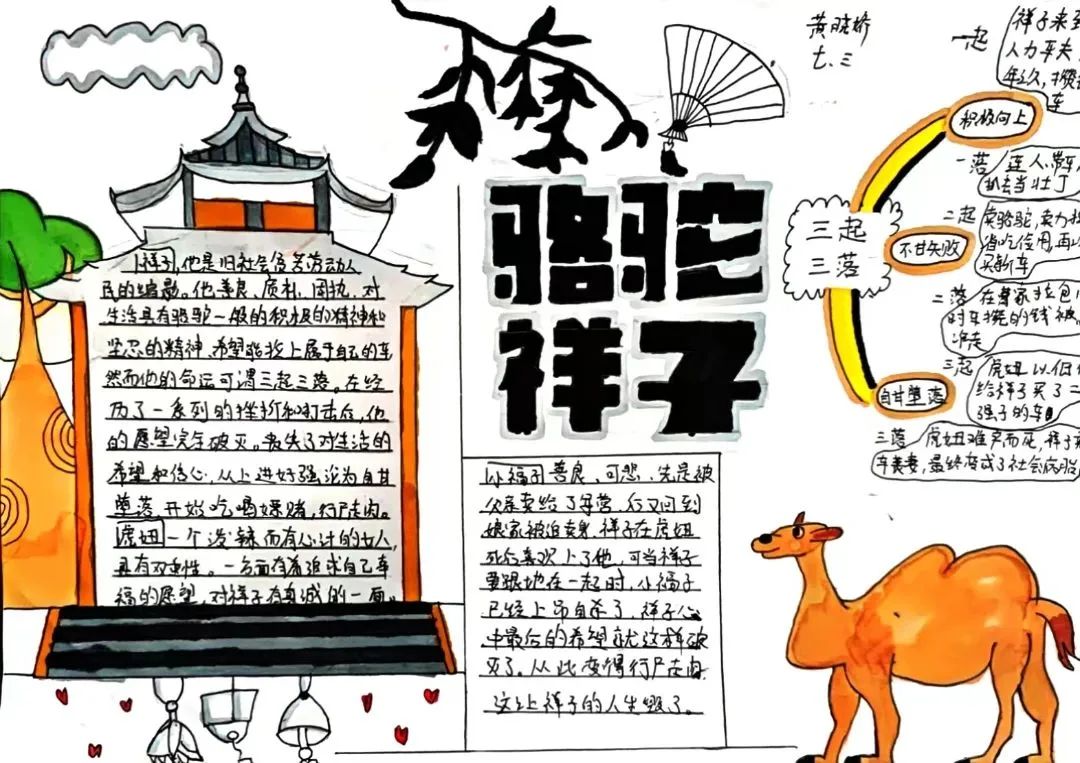 骆驼
祥子
黄晓娇
七.三
祥子,他是旧社会危苦劳动人
民的缩影。他善良、质朴、固执、对
生活具有骆驼一般的积极的精神和
坚忍的精神、希望能拉上属于自己的车
然而他的命运可谓三起三落。在经
历了一系列的挫折和打击后,他
的愿望完全破灭。丧失了对生活的
希望和信心,从上进好强沦为自甘
堕落,开始吃喝嫖赌,行尸走肉。
虎妞一个泼辣而有心计的女人,
具有双重性。一方面有着追求自己幸
福的愿望,对祥子有真诚的一面。
小福子善良、可悲、先是被
父亲卖给了军营,后又回到
娘家被迫卖身。祥子在虎妞
死后喜欢上了他,可当祥子
要跟地在一起时,小福子
已经上吊自杀了,祥子心
中最后的希望就这样破
灭了。从此变得行尸走肉
这上祥子的人生毁了。
三起
三落
积极向上
不甘失败
自甘堕落
一起
祥子来到
人力车夫,
年之久,攒
车
一落 连人带车
抓去当壮丁
二起 卖骆驼,卖力
省吃俭用,再
买新车
二落 在曹家拉包
时车攒的钱被
净走
三起 虎妞以低
给祥子买了二
强子的车
三落 虎妞难产而死,祥子
车葬妻,最终变成了社会病胎